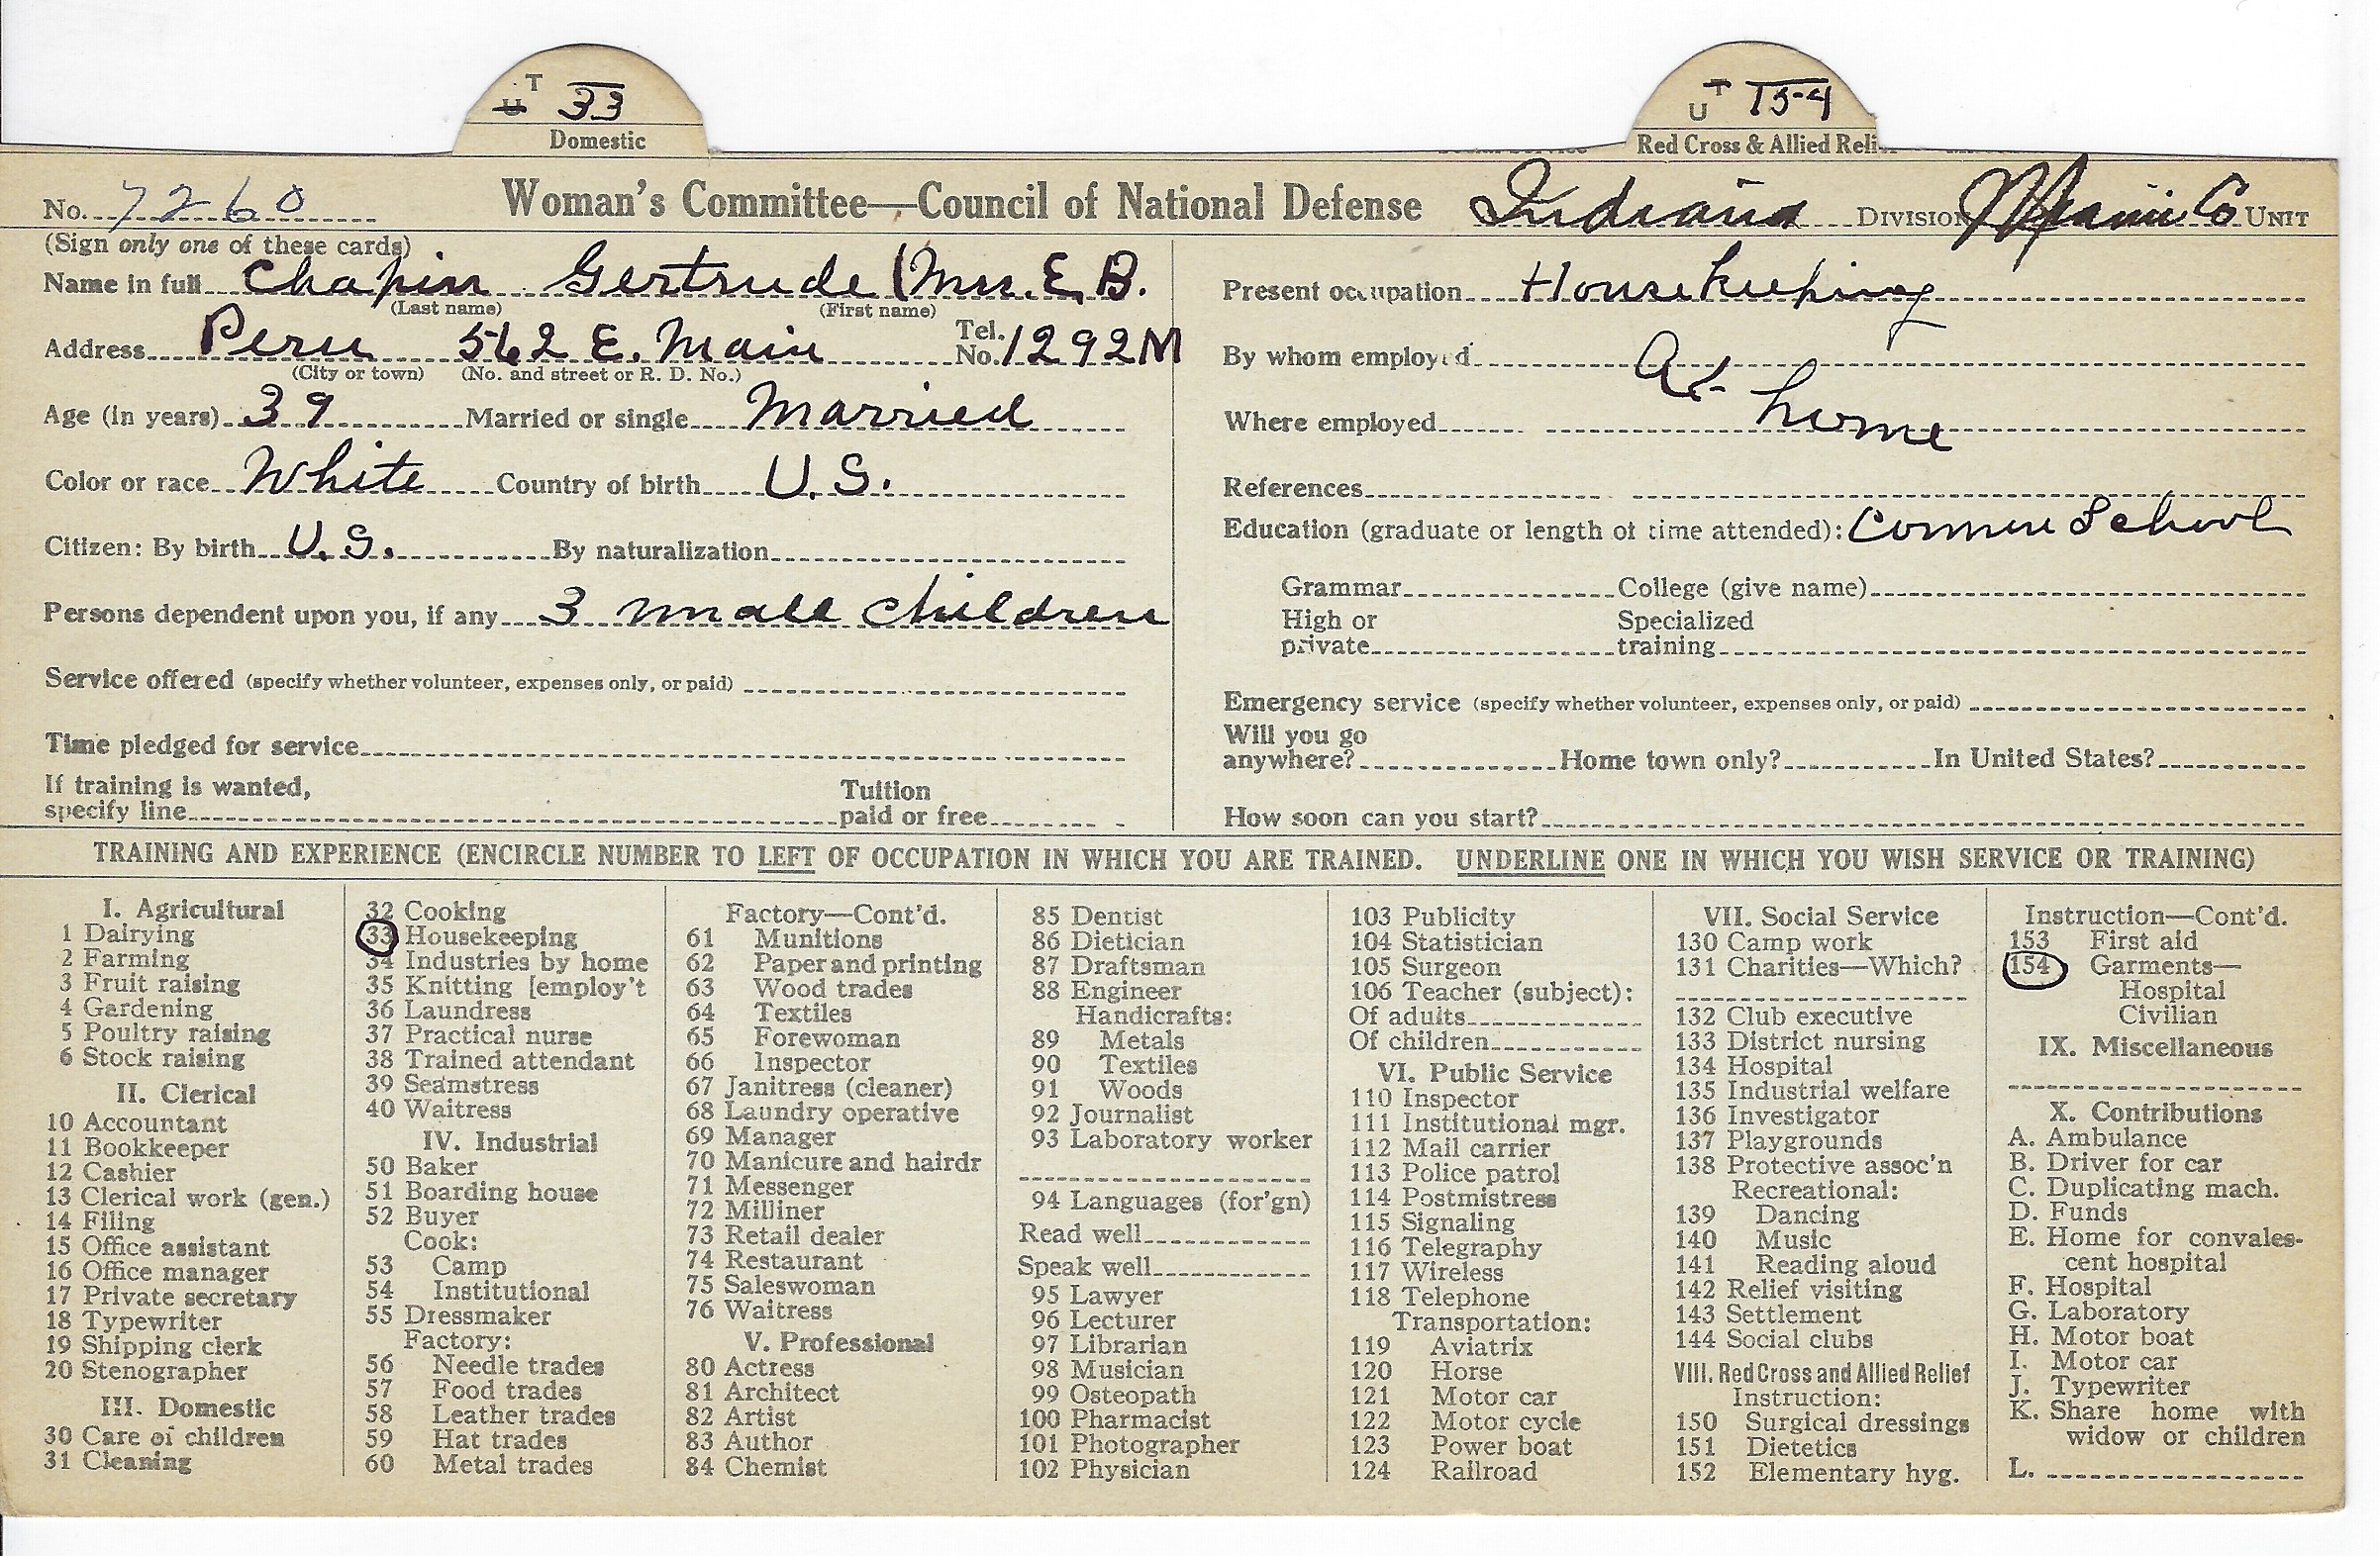 T U 33
Domestic
U T 154
Red Cross & Allied Reli
No. 7260 Woman's Committee—Council of National Defense Indiana DIVISION Miami Co UNIT
(Sign only one of these cards)
Name in full Chapin Gertrude (Mrs. E. B.
(Last name) (First name)
Address Peru 562 E. Main Tel. No. 1292M
(City or town) (No. and street or R. D. No.)
Age (in years) 39 Married or single Married
Color or race White Country of birth U. S.
Citizen: By birth U. S. By naturalization
Persons dependent upon you, if any 3 small children
Service offered (specify whether volunteer, expenses only, or paid)
Time pledged for service
If training is wanted,
specify line Tuition paid or free
Present occupation Housekeeping
By whom employed At
Where employed home
References
Education (graduate or length of time attended): Common School
Grammar College (give name)
High or private Specialized training
Emergency service (specify whether volunteer, expenses only, or paid)
Will you go
anywhere? Home town only? In United States?
How soon can you start?
TRAINING AND EXPERIENCE (ENCIRCLE NUMBER TO LEFT OF OCCUPATION IN WHICH YOU ARE TRAINED. UNDERLINE ONE IN WHICH YOU WISH SERVICE OR TRAINING)
I. Agricultural
1 Dairying
2 Farming
3 Fruit raising
4 Gardening
5 Poultry raising
6 Stock raising
II. Clerical
10 Accountant
11 Bookkeeper
12 Cashier
13 Clerical work (gen.)
14 Filing
15 Office assistant
16 Office manager
17 Private secretary
18 Typewriter
19 Shipping clerk
20 Stenographer
III. Domestic
30 Care of children
31 Cleaning
32 Cooking
33 Housekeeping
34 Industries by home
35 Knitting [employ't
36 Laundress
37 Practical nurse
38 Trained attendant
39 Seamstress
40 Waitress
IV. Industrial
50 Baker
51 Boarding house
52 Buyer
Cook:
53 Camp
54 Institutional
55 Dressmaker
Factory:
56 Needle trades
57 Food trades
58 Leather trades
59 Hat trades
60 Metal trades
Factory—Cont'd.
61 Munitions
62 Paper and printing
63 Wood trades
64 Textiles
65 Forewoman
66 Inspector
67 Janitress (cleaner)
68 Laundry operative
69 Manager
70 Manicure and hairdr
71 Messenger
72 Milliner
73 Retail dealer
74 Restaurant
75 Saleswoman
76 Waitress
V. Professional
80 Actress
81 Architect
82 Artist
83 Author
84 Chemist
85 Dentist
86 Dietician
87 Draftsman
88 Engineer
Handicrafts:
89 Metals
90 Textiles
91 Woods
92 Journalist
93 Laboratory worker
94 Languages (for'gn)
Read well
Speak well
95 Lawyer
96 Lecturer
97 Librarian
98 Musician
99 Osteopath
100 Pharmacist
101 Photographer
102 Physician
103 Publicity
104 Statistician
105 Surgeon
106 Teacher (subject):
Of adults
Of children
VI. Public Service
110 Inspector
111 Institutional mgr.
112 Mail carrier
113 Police patrol
114 Postmistress
115 Signaling
116 Telegraphy
117 Wireless
118 Telephone
Transportation:
119 Aviatrix
120 Horse
121 Motor car
122 Motor cycle
123 Power boat
124 Railroad
VII. Social Service
130 Camp work
131 Charities—Which?
132 Club executive
133 District nursing
134 Hospital
135 Industrial welfare
136 Investigator
137 Playgrounds
138 Protective assoc'n
Recreational:
139 Dancing
140 Music
141 Reading aloud
142 Relief visiting
143 Settlement
144 Social clubs
VIII. Red Cross and Allied Relief
Instruction:
150 Surgical dressings
151 Dietetics
152 Elementary hyg.
Instruction—Cont'd.
153 First aid
154 Garments—
Hospital
Civilian
IX. Miscellaneous
X. Contributions
A. Ambulance
B. Driver for car
C. Duplicating mach.
D. Funds
E. Home for convales-
cent hospital
F. Hospital
G. Laboratory
H. Motor boat
I. Motor car
J. Typewriter
K. Share home with
widow or children
L.